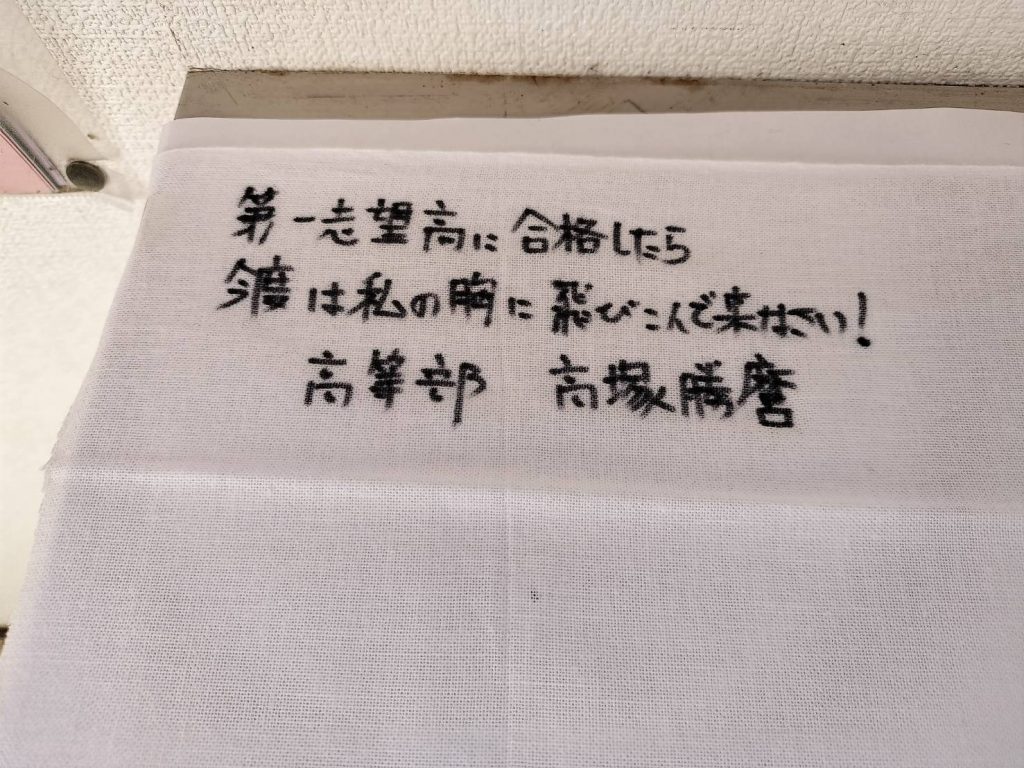 第一志望高に合格したら
今度は私の胸に飛びこんで来なさい!
高等部 高塚勝磨